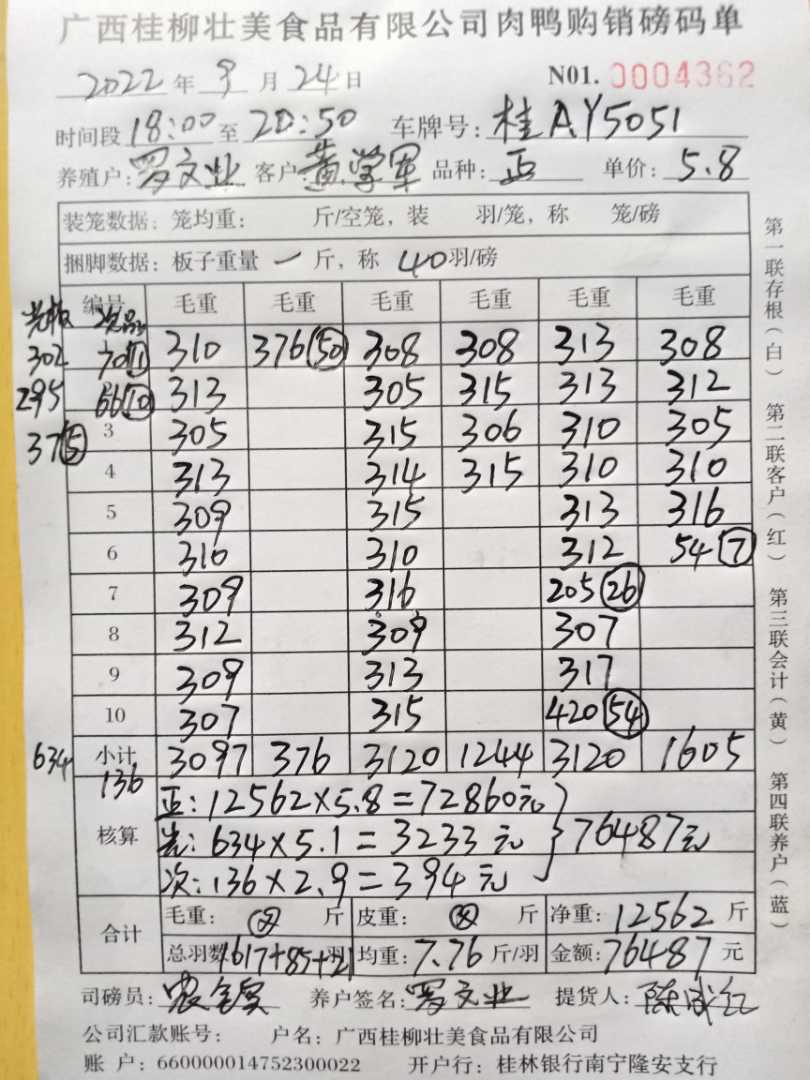 广西桂柳壮美食品有限公司肉鸭购销磅码单
2022年9月24日 N01. 0004362
时间段18:00至20:50 车牌号:桂AY5051
养殖户:罗文业 客户:黄学军 品种:正 单价:5.8
装笼数据:笼均重: 斤/空笼,装 羽/笼,称 笼/磅
捆脚数据:板子重量一斤,称40羽/磅
编号 毛重 毛重 毛重 毛重 毛重 毛重
次品
302 70(11) 310 376(50) 308 308 313 308
295 66(10) 313 305 315 313 312
37(5) 3 305 315 306 310 305
4 313 314 315 310 310
5 309 315 313 316
6 310 310 312 54(7)
7 309 316 205(26)
8 312 309 307
9 309 313 317
10 307 315 420(54)
634 小计 3097 376 3120 1244 3120 1605
136
核算
正:12562×5.8=72860元
光:634×5.1=3233元 }76487元
次:136×2.9=394元
合计 毛重: 斤 皮重: 斤 净重:12562斤
总羽数1617+85+21羽 均重:7.76斤/羽 金额:76487元
司磅员: 养户签名:罗文业 提货人:
公司汇款账号: 户名:广西桂柳壮美食品有限公司
账 户:660000014752300022 开户行:桂林银行南宁隆安支行
第一联存根(白) 第二联客户(红) 第三联会计(黄) 第四联养户(蓝)